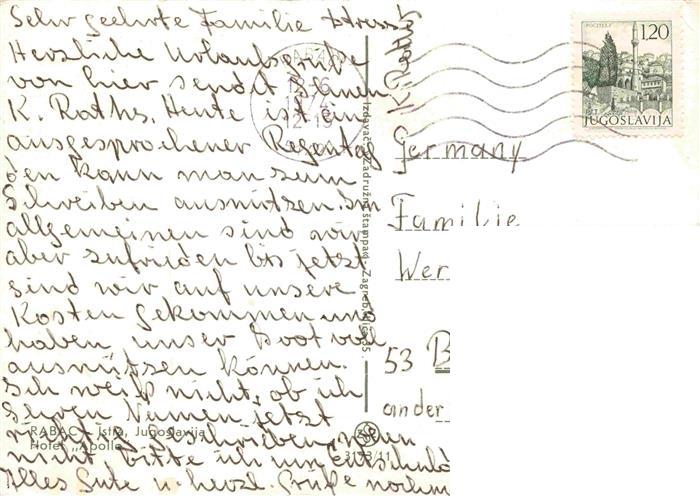 Sehr geehrte Familie
Herzliche Urlaubsgrüße
von hier sendet Ihnen
K. Raths. Heute ist ein
ausgesprochener Regentag
den kann man zum
Schreiben ausnützen. Im
allgemeinen sind wir
aber zufrieden bis jetzt
sind wir auf unsere
Kosten gekommen und
haben unser Boot voll
ausnützen können.
Ich weiß nicht, ob ich
Ihren Namen jetzt
richtig geschrieben, wenn
nicht bitte ich um entschuld
Alles Gute u. herzl. Grüße nochm
K. Raths
RABAC - Istra, Jugoslavija
Hotel „Apollo"
Izdavač: Zadružna štampa - Zagreb
3173/11
POČITELJ
1,20
JUGOSLAVIJA
Germany
Familie
Wer
53 B
ander